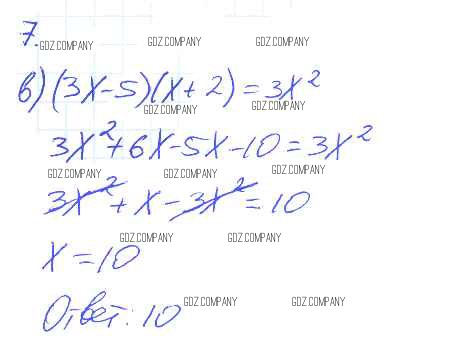 7.
GDZ.COMPANY GDZ.COMPANY GDZ.COMPANY
в) (3x-5)(x+2) = 3x²
GDZ.COMPANY GDZ.COMPANY
3x²+6x-5x-10=3x²
GDZ.COMPANY GDZ.COMPANY GDZ.COMPANY
3x² + x - 3x² = 10
GDZ.COMPANY GDZ.COMPANY
x = 10
GDZ.COMPANY GDZ.COMPANY
Ответ: 10